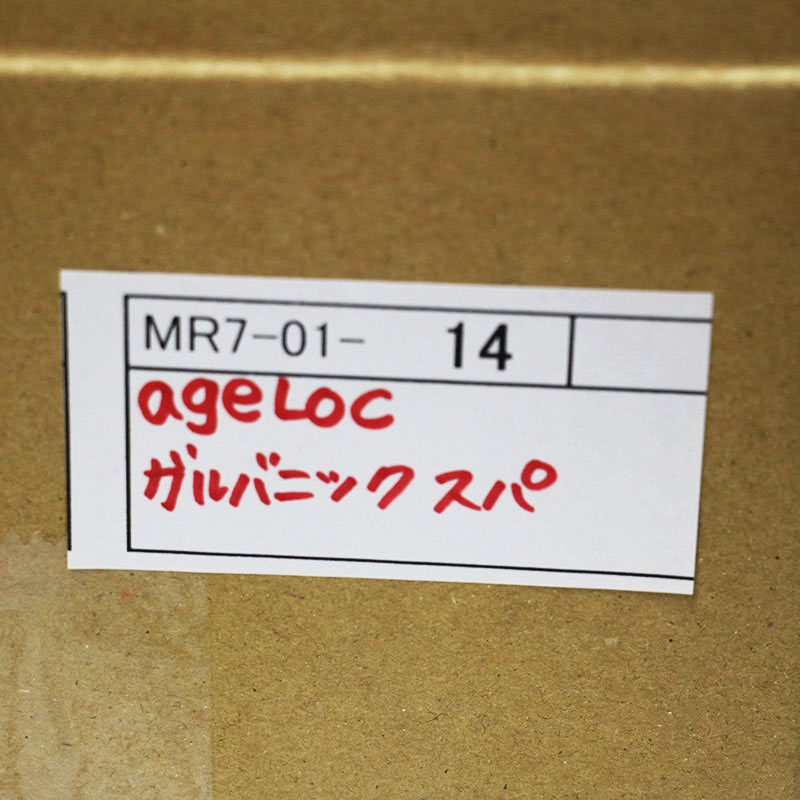 MR7-01- 14
ageLOC
ガルバニック スパ